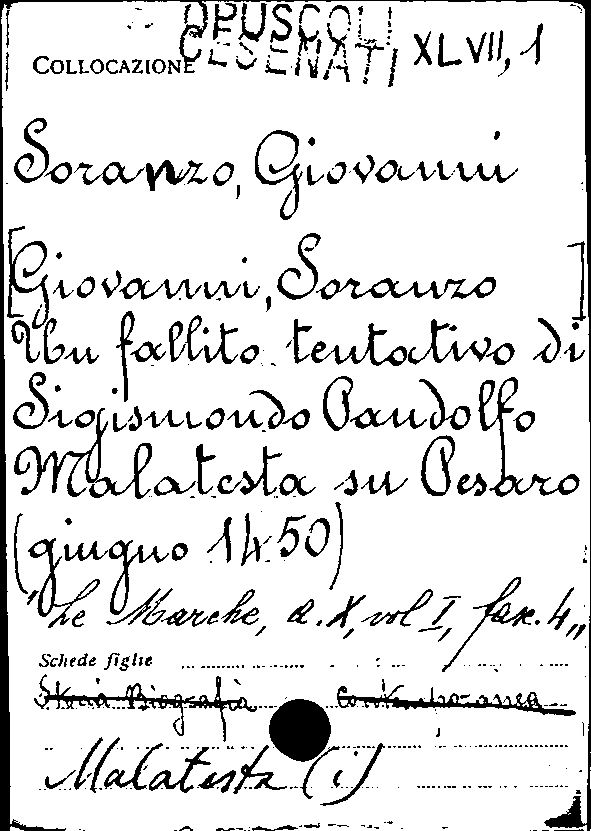 OPUSCOLI
CESENATI XLVII, 1
COLLOCAZIONE
Soranzo, Giovanni
[Giovanni, Soranzo]
Un fallito tentativo di
Sigismondo Pandolfo
Malatesta su Pesaro
(giugno 1450)
"Le Marche, a. X, vol I, fasc. 4„
Schede figlie
Storia Biografia contemporanea
Malatesta (i)